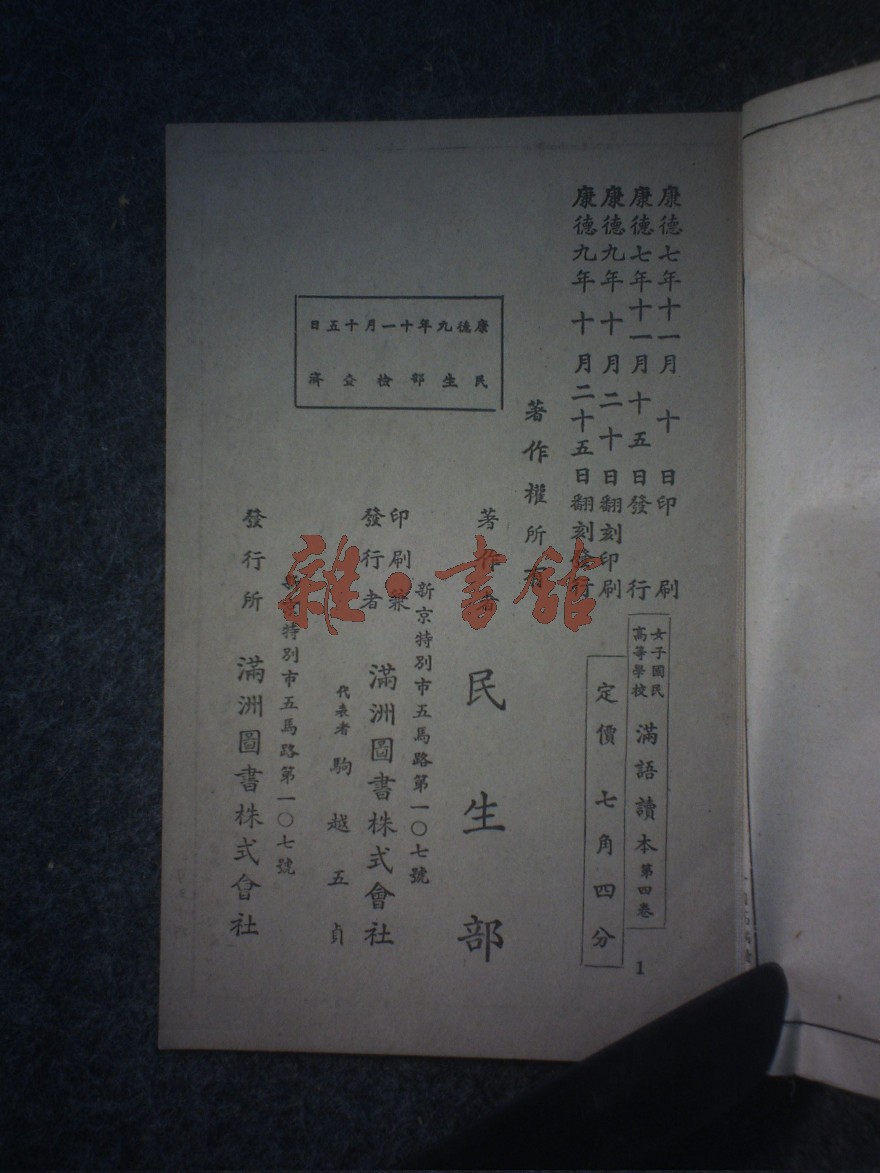 康德七年十一月　十　日印　　刷
康德七年十一月　十五　日發　　行
康德九年　十　月　二十日翻刻印刷
康德九年　十　月二十五日翻刻發行
女子國民
高等學校
滿語讀本 第四卷
定價　七角四分
1
著作權所有
康德九年十一月十五日
民生部檢查濟
著作者　民生部
新京特別市五馬路第一〇七號
印刷兼
發行者
滿洲圖書株式會社
代表者　駒越五貞
新京特別市五馬路第一〇七號
發行所　滿洲圖書株式會社
雜·書館